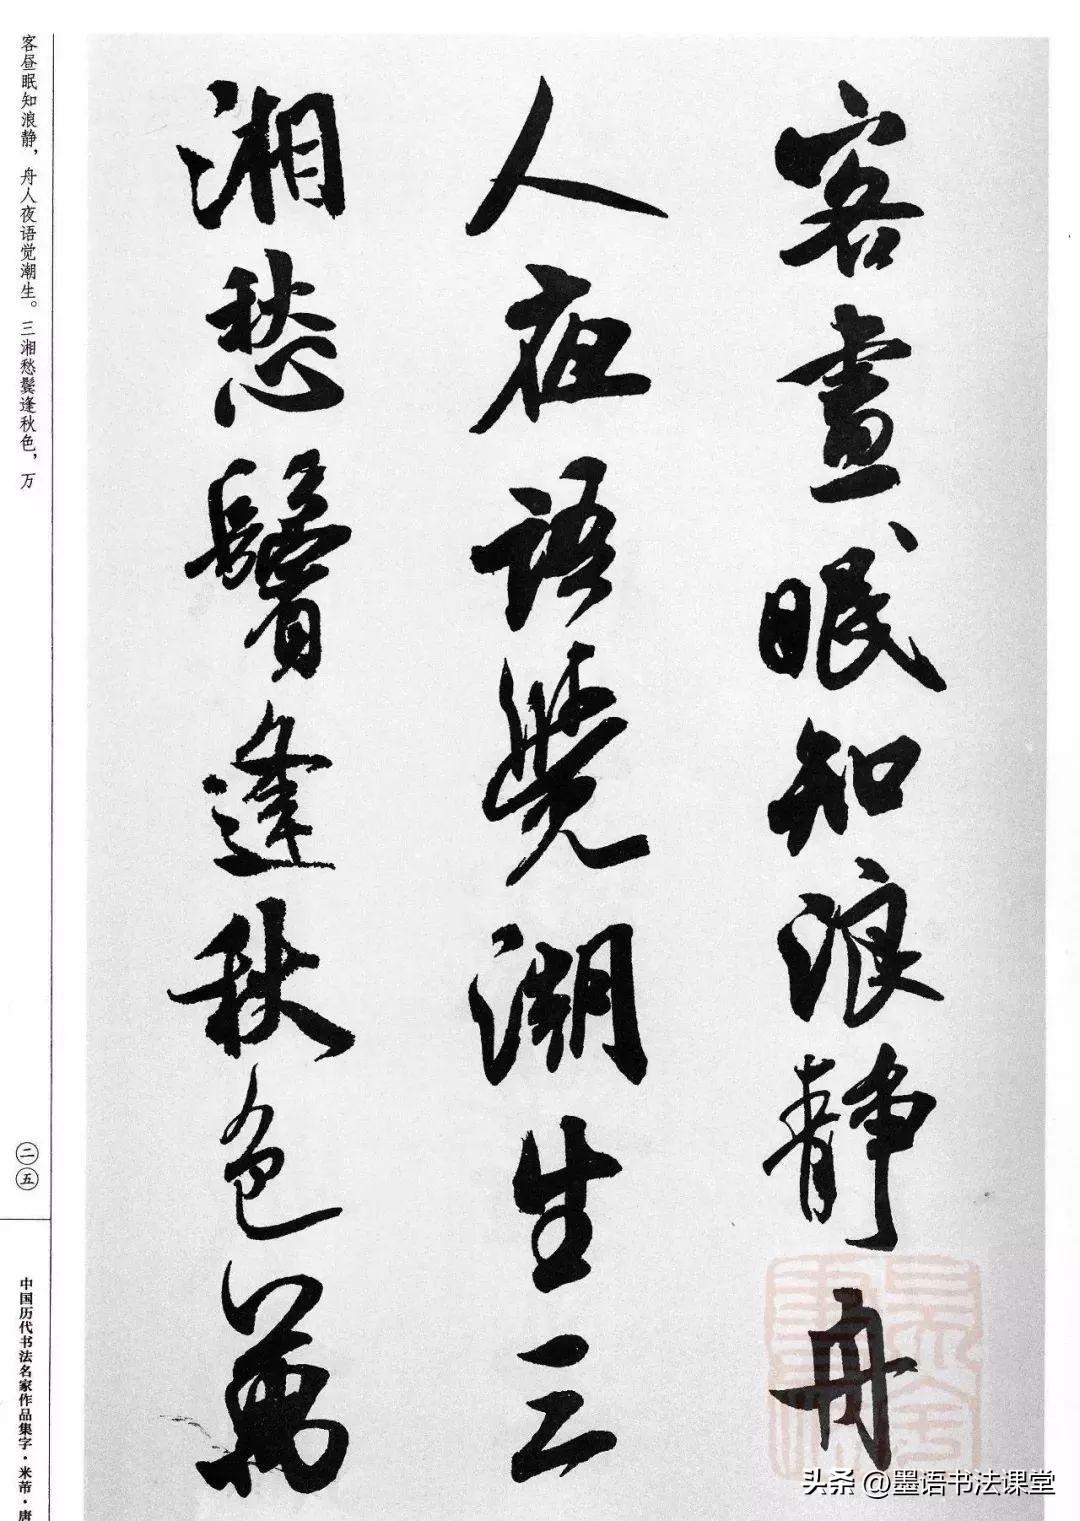 客晝眠知浪靜舟
人夜語覺潮生三
湘愁鬢逢秋色萬
客昼眠知浪静，舟人夜语觉潮生。三湘愁鬓逢秋色，万
二五
中国历代书法名家作品集字·米芾·唐
头条 @墨语书法课堂